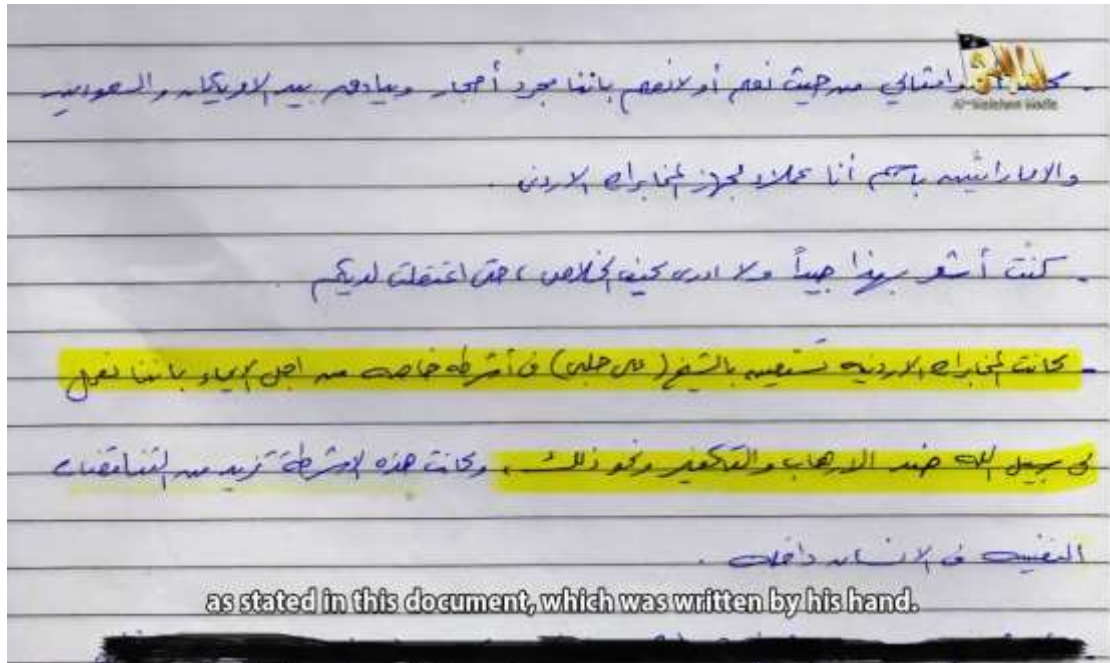 وامثالي من حيث نعلم أو لانعلم باننا مجرد أحجار وبيادق بيد الامريكان والسعوديين
والاماراتيين باسم أنا عملاء لجهاز المخابرات الاردني .
- كنت أشعر بهذا جيداً ولا ادري كيف الخلاص ، حتى اعتقلت لديكم .
- كانت المخابرات الاردنيه تستعين بالشيخ ( علي حلبي ) في أشرطه خاصه من اجل الايحاء باننا نعمل
في سبيل الله ضد الارهاب والتكفير ونحو ذلك ، وكانت هذه الاشرطة تزيد من التناقضات
النفسيه في الانسان داخله .
as stated in this document, which was written by his hand.